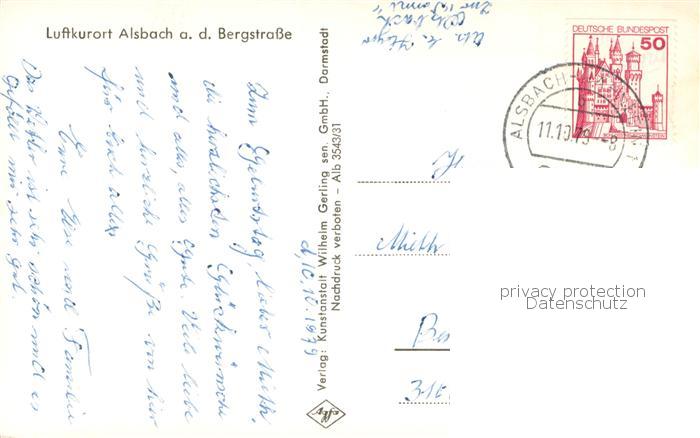 Luftkurort Alsbach a. d. Bergstraße
d. 10.10.1979
Zum Geburtstag, liebe
die herzlichsten Glückwünsche
und alles, alles Gute. Viele liebe
und herzliche Grüße von hier
für Euch alle
Eure Else und Familie
Das Wetter ist sehr schön und es
gefällt mir sehr gut.
Verlag: Kunstanstalt Wilhelm Gerling sen. GmbH., Darmstadt
Nachdruck verboten – Alb 3543/31
DEUTSCHE BUNDESPOST
50
ALSBACH
11.10.79-8
privacy protection
Datenschutz